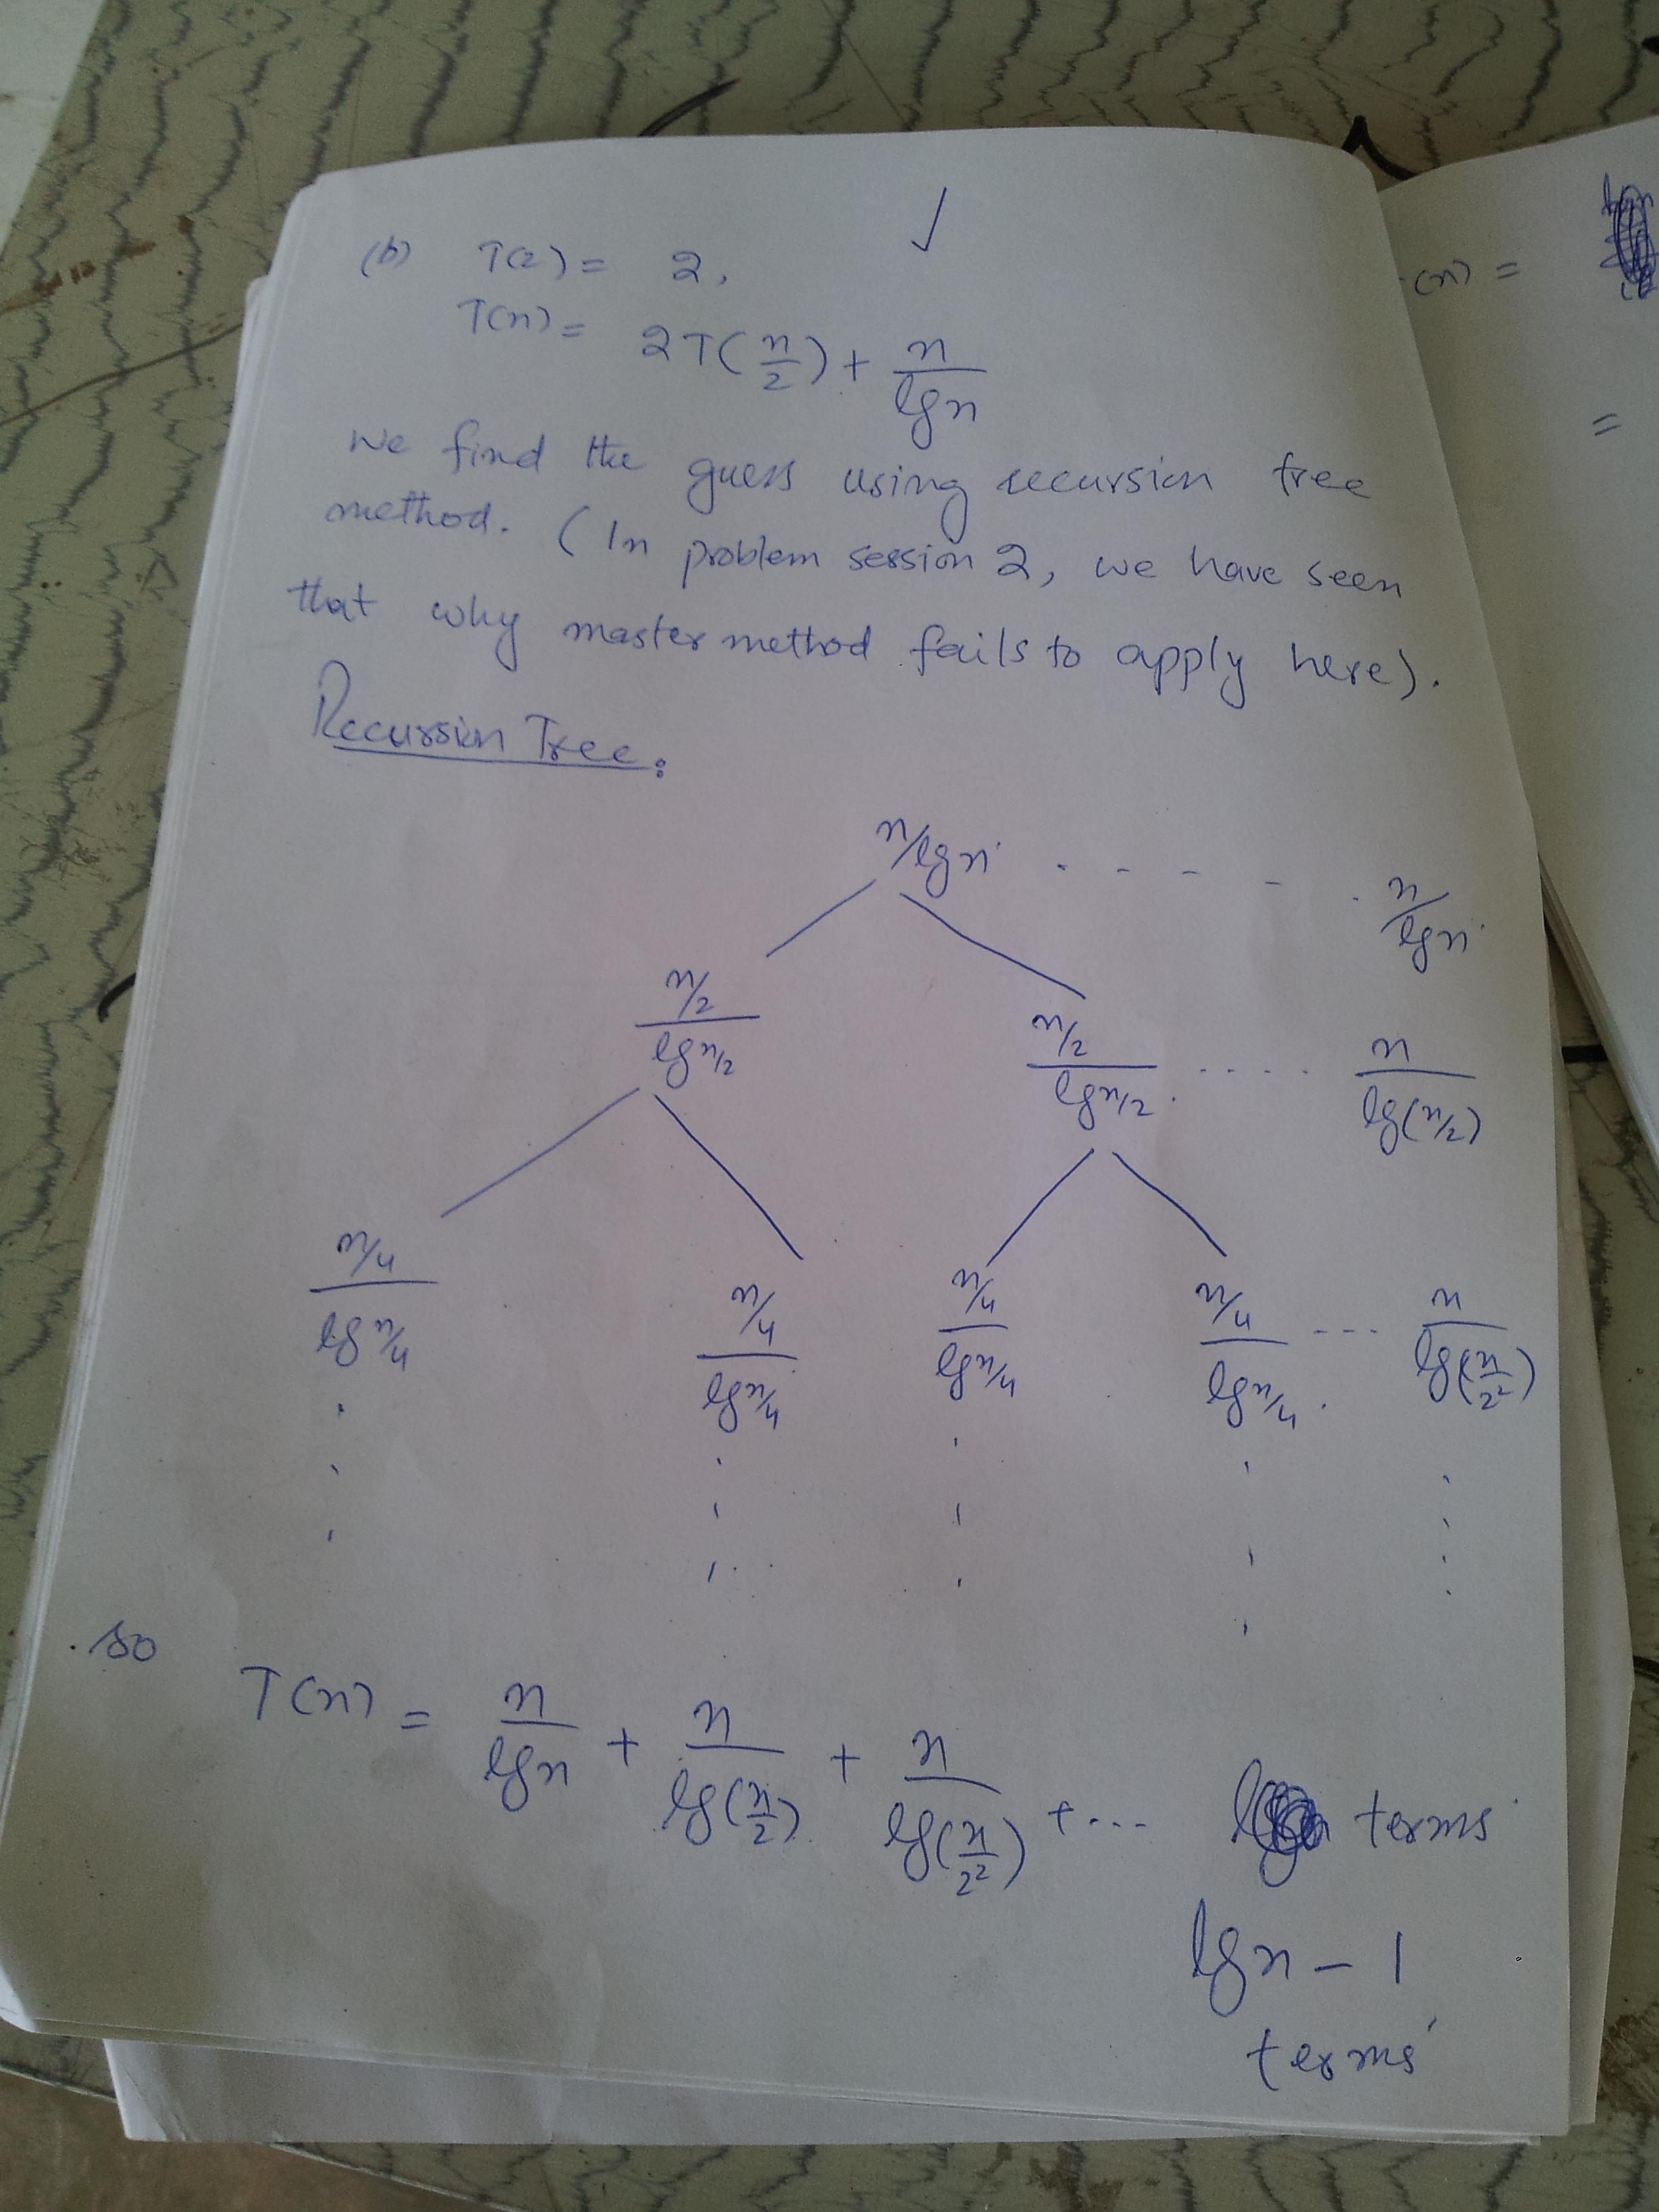 (b) T(2) = 2, ✓
T(n) = 2T(n/2) + n/lg n
We find the guess using recursion tree
method. (In problem session 2, we have seen
that why master method fails to apply here).
Recursion Tree:
n/lg n . - - - . n/lg n
n/2 / lg n/2 n/2 / lg n/2 . . . . n/lg(n/2)
n/4 / lg n/4 n/4 / lg n/4 n/4 / lg n/4 n/4 / lg n/4 - - - n/lg(n/2²)
so T(n) = n/lg n + n/lg(n/2) + n/lg(n/2²) + ... terms
lg n - 1
terms
(n) =
=